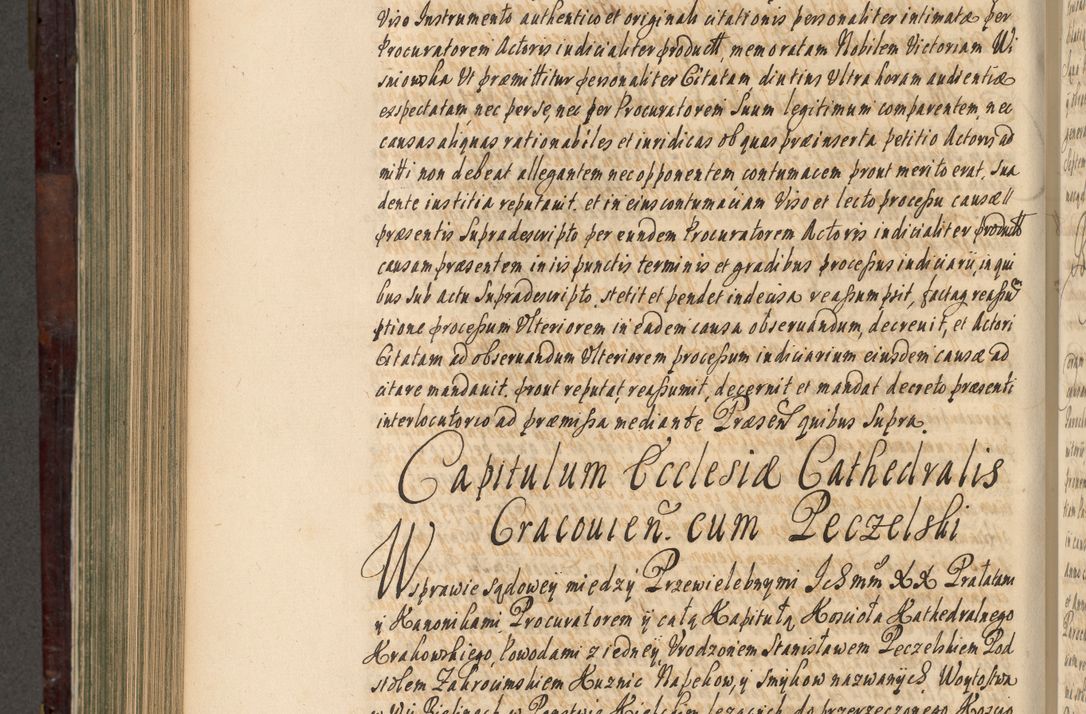 Viso Instrumento authentico et originali citationis personaliter intimatæ per
Procuratorem Actoris iudicialiter product, memoratam Nobilem Victoriam Wi
sniowska Ut præmittitur personaliter Citatam diutius Ultra horam audientiæ
expectatam, nec per se, nec per Procuratorem Suum legitimum comparentem, nec
causas aliquas rationabiles et iuridicas ob quas præinserta petitio Actoris ad
mitti non debeat allegantem nec opponentem contumacem prout merito erat, Sua
dente iustitia reputauit. et in eius contumaciam Viso et lecto processu causæ
præsentis Supradescripto per eundem Procuratorem Actoris iudicialiter product
causam præsentem in iis punctis terminis et gradibus processus iudiciarii, in qui
bus sub actu Supradescripto. stetit et pendet indecisa reassumpsit, factaq reassu
ptione processum Ulteriorem in eadem causa obseruandum, decreuit, et Actori
Citatam ad obseruandum Ulteriorem processum iudiciarium eiusdem causæ ad
citare mandauit, prout reputat, reassumit, decernit et mandat decreto præsenti
interlocutorio ad præmissa mediante Præsen quibus Supra.
Capitulum Ecclesiæ Cathedralis
Cracouien. cum Peczelski
W sprawie sądowey między Przewielebnymi Ich mm XX Prałatami
y Kanonikami, Procuratorem y całą Kapitułą Koscioła Kathedralnego
Krakowskiego, Powodami z iedney Urodzonem Stanisławem Peczelskiem Pod
stolem Zakroczmskiem Kuznic Napękow, y Smykow nazwanych Woytostwa
w Wsi Bielinach w Panstwie Kieleckim lezących do przerzeczonego Koscio